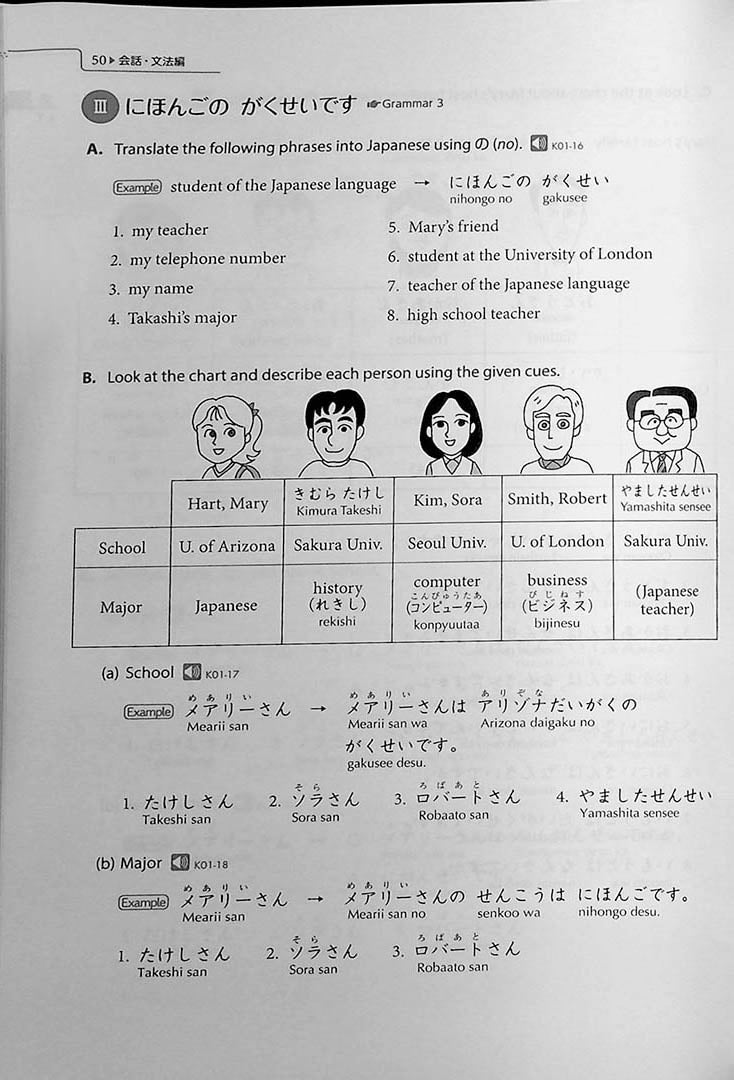 50▶会話・文法編
Ⅲ にほんごの がくせいです ☞Grammar 3
A. Translate the following phrases into Japanese using の (no). K01-16
Example student of the Japanese language → にほんごの がくせい
nihongo no gakusee
1. my teacher
2. my telephone number
3. my name
4. Takashi's major
5. Mary's friend
6. student at the University of London
7. teacher of the Japanese language
8. high school teacher
B. Look at the chart and describe each person using the given cues.
Hart, Mary きむら たけし Kim, Sora Smith, Robert やましたせんせい
Kimura Takeshi Yamashita sensee
School U. of Arizona Sakura Univ. Seoul Univ. U. of London Sakura Univ.
history computer business
こんぴゅうたあ びじねす
Major Japanese (れきし) (コンピューター) (ビジネス) (Japanese teacher)
rekishi konpyuutaa bijinesu
(a) School K01-17
めありい めありい ありぞな
Example メアリーさん → メアリーさんは アリゾナだいがくの
Mearii san Mearii san wa Arizona daigaku no
がくせいです。
gakusee desu.
そら ろばあと
1. たけしさん 2. ソラさん 3. ロバートさん 4. やましたせんせい
Takeshi san Sora san Robaato san Yamashita sensee
(b) Major K01-18
めありい めありい
Example メアリーさん → メアリーさんの せんこうは にほんごです。
Mearii san Mearii san no senkoo wa nihongo desu.
そら ろばあと
1. たけしさん 2. ソラさん 3. ロバートさん
Takeshi san Sora san Robaato san